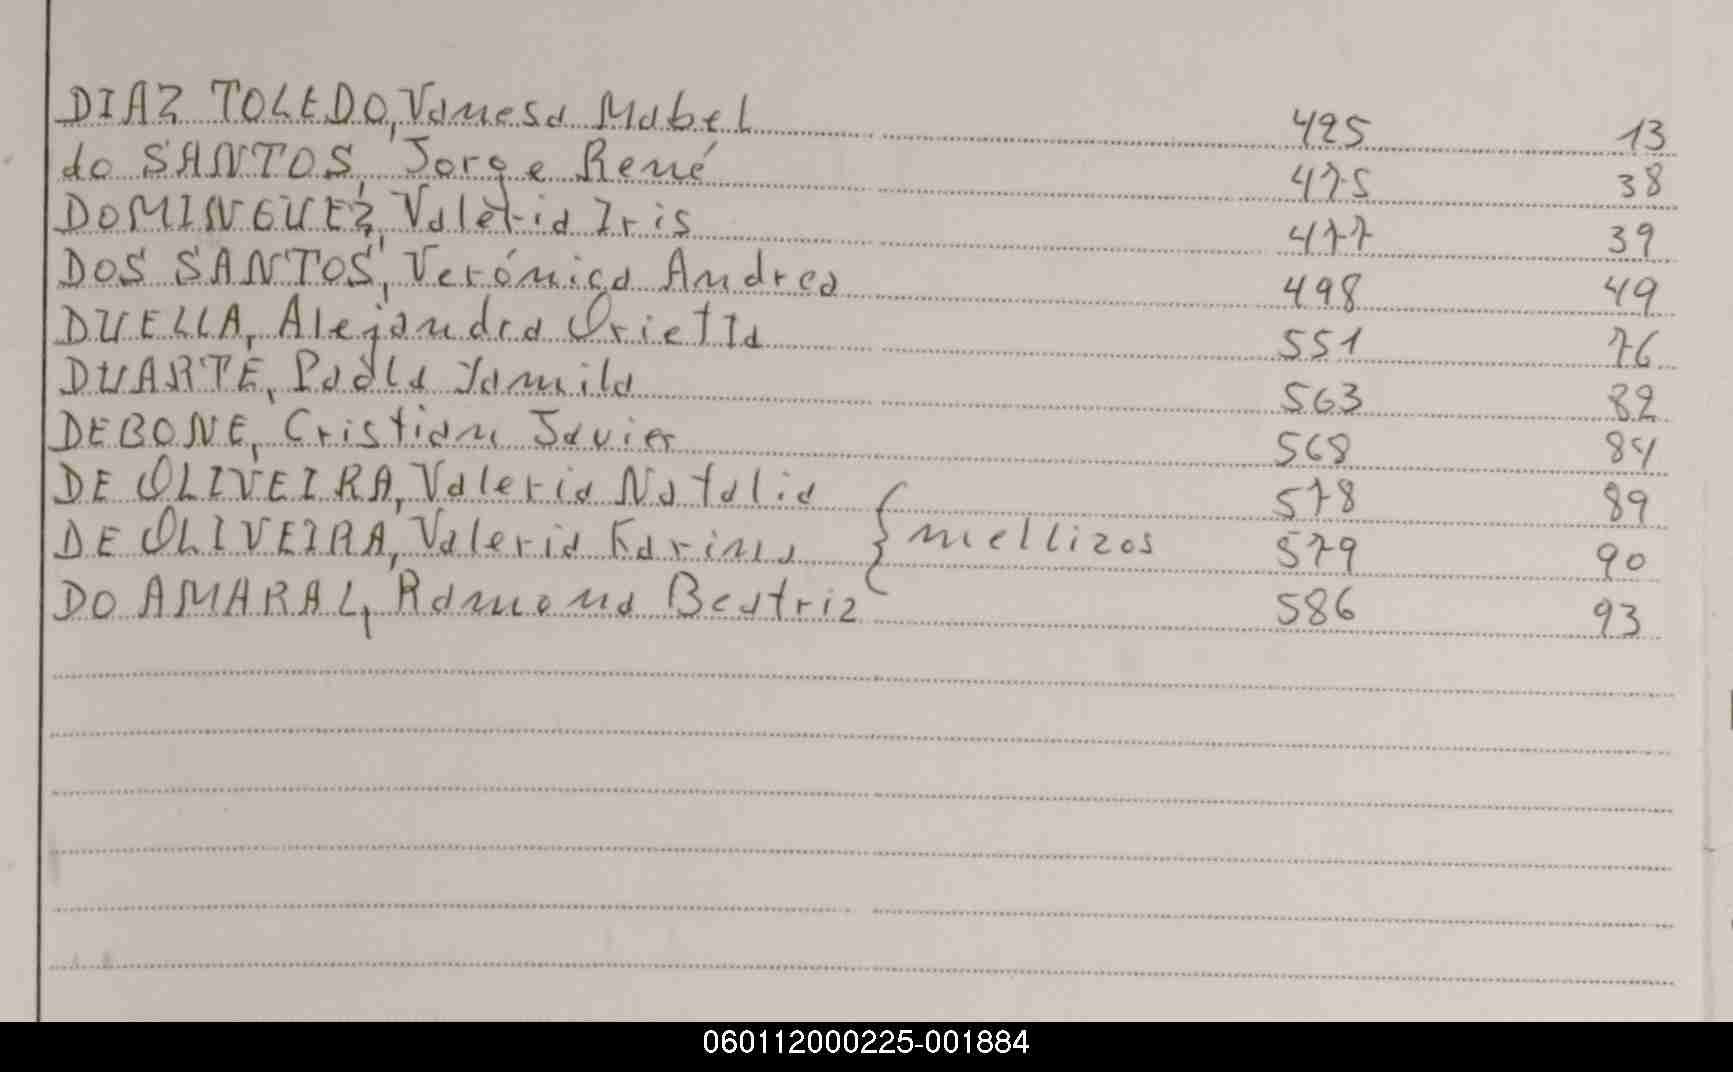 DIAZ TOLEDO, Vanesa Mabel 425 13
do SANTOS, Jorge René 475 38
DOMINGUEZ, Valeria Iris 477 39
DOS SANTOS, Verónica Andrea 498 49
DUELLA, Alejandra Orietta 551 76
DUARTE, Paola Yamila 563 82
DEBONE, Cristian Javier 568 84
DE OLIVEIRA, Valeria Natalia 578 89
mellizos
DE OLIVEIRA, Valeria Karina 579 90
DO AMARAL, Ramona Beatriz 586 93
060112000225-001884